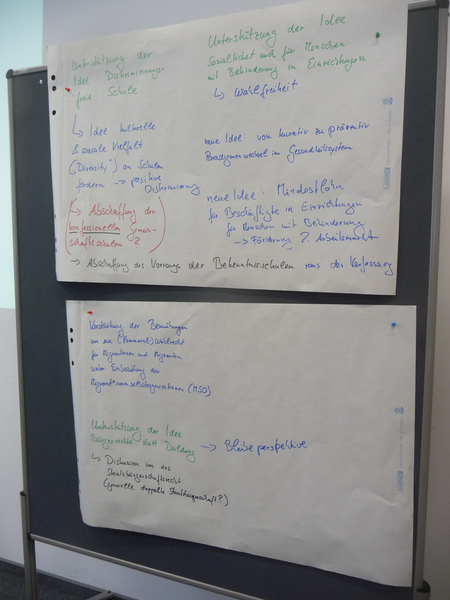 Unterstützung der
Idee Diskriminierungs-
freie Schule
↳ Idee kulturelle
& soziale Vielfalt
("Diversity") an Schulen
fördern → positive
Diskriminierung
(↳ Abschaffung der
konfessionellen
schaftsschulen ?)
→ Abschaffung des Vorrangs der Bekenntnisschulen aus der Verfassung
Unterstützung der Idee
Sozialticket auch für Menschen
mit Behinderung in Einrichtungen
↳ Wahlfreiheit
neue Idee: von kurativ zu präventiv
Paradigmenwechsel im Gesundheitssystem
neue Idee: Mindestlohn
für Beschäftigte in Einrichtungen
für Menschen mit Behinderung
→ Förderung 2. Arbeitsmarkt
Verstärkung der Bemühungen
um ein (Kommunal-)wahlrecht
für Migrantinnen und Migranten
unter Einbeziehung der
Migrant*innenselbstorganisationen (MSO)
Unterstützung der Idee
Bürgerrechte statt Duldung → Bleibeperspektive
↳ Diskussion um das
Staatsbürgerschaftsrecht
(generelle doppelte Staatsangehörigkeit?)